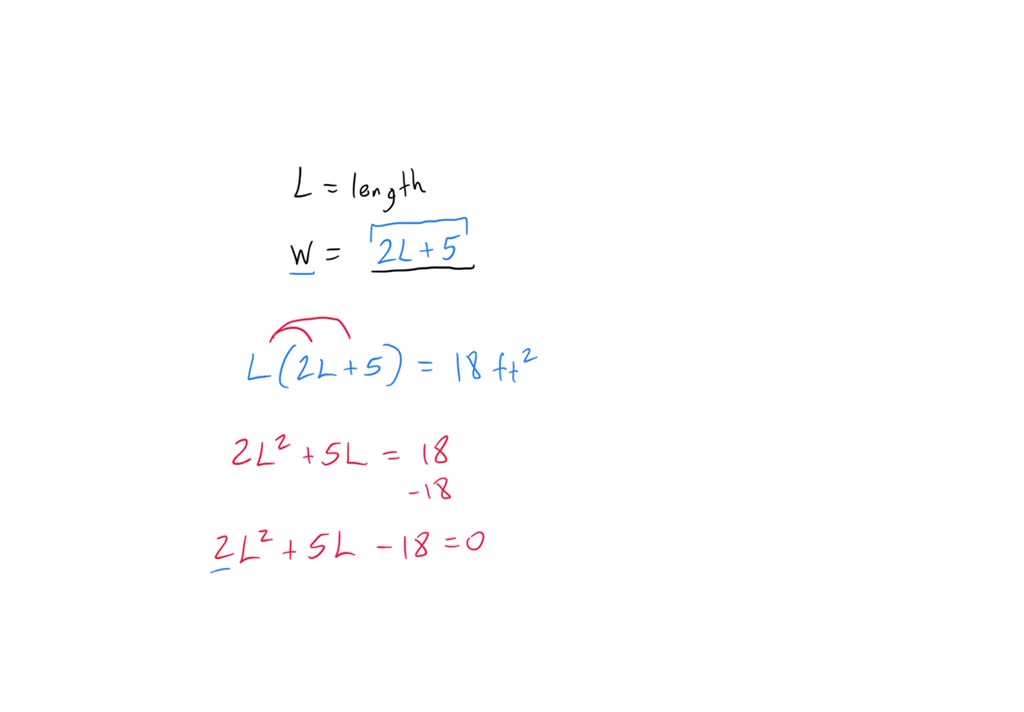 L = length
W = 2L + 5
L(2L + 5) = 18 ft²
2L² + 5L = 18
-18
2L² + 5L - 18 = 0